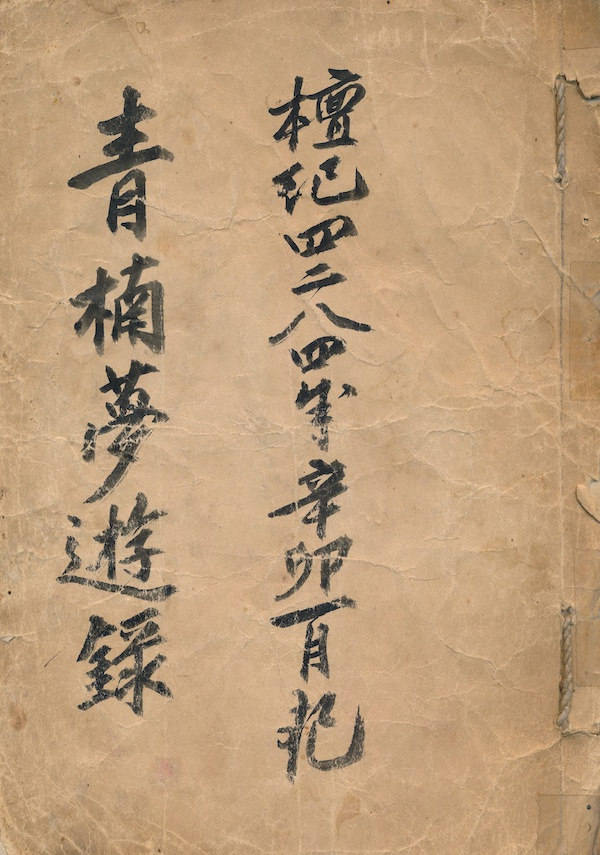 檀紀四二八四年辛卯一月
青楠夢遊錄